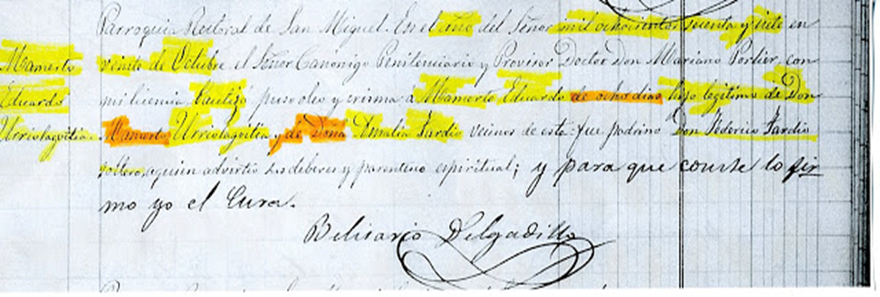 Parroquia Rectoral de San Miguel. En el año del Señor mil ochocientos sesenta y siete en
Mamerto veinte de Octubre el Señor Canonigo Penitenciario y Provisor Doctor Don Mariano Portier, con
Eduardo mi licencia bautizó puso oleo y crisma a Mamerto Eduardo de ocho dias hijo lejitimo de Don
Urriolagoitia. Mamerto Urriolagoitia y de Doña Amalia Jardin vecinos de esta: fue padrino Don Federico Jardin
soltero, a quien advirtio sus deberes y parentesco espiritual; y para que conste lo fir
mo yo el Cura.
Belisario Delgadillo